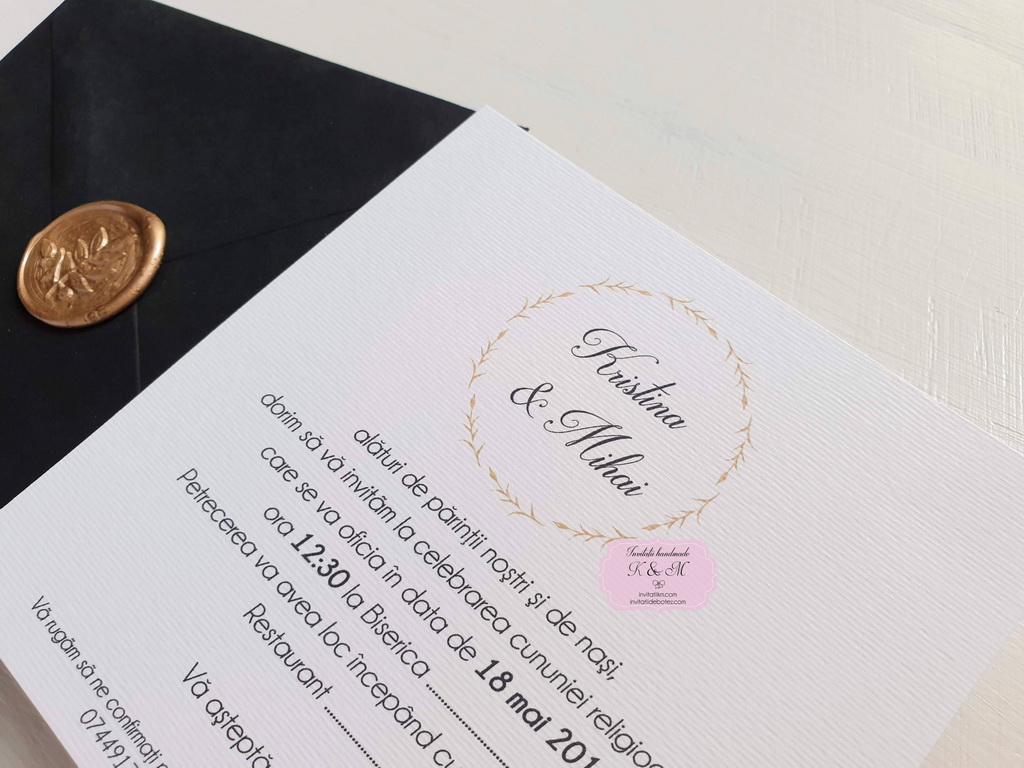 Kristina
& Mihai
alături de părinții noștri și de nași,
dorim să vă invităm la celebrarea cununiei religio
care se va oficia în data de 18 mai 201
ora 12:30 la Biserica ................
Petrecerea va avea loc începând cu
Restaurant ................
Vă așteptă
Vă rugăm să ne confirmați
074491
Invitatii handmade
K & M
invitatiikm.com
invitatiidebotez.com